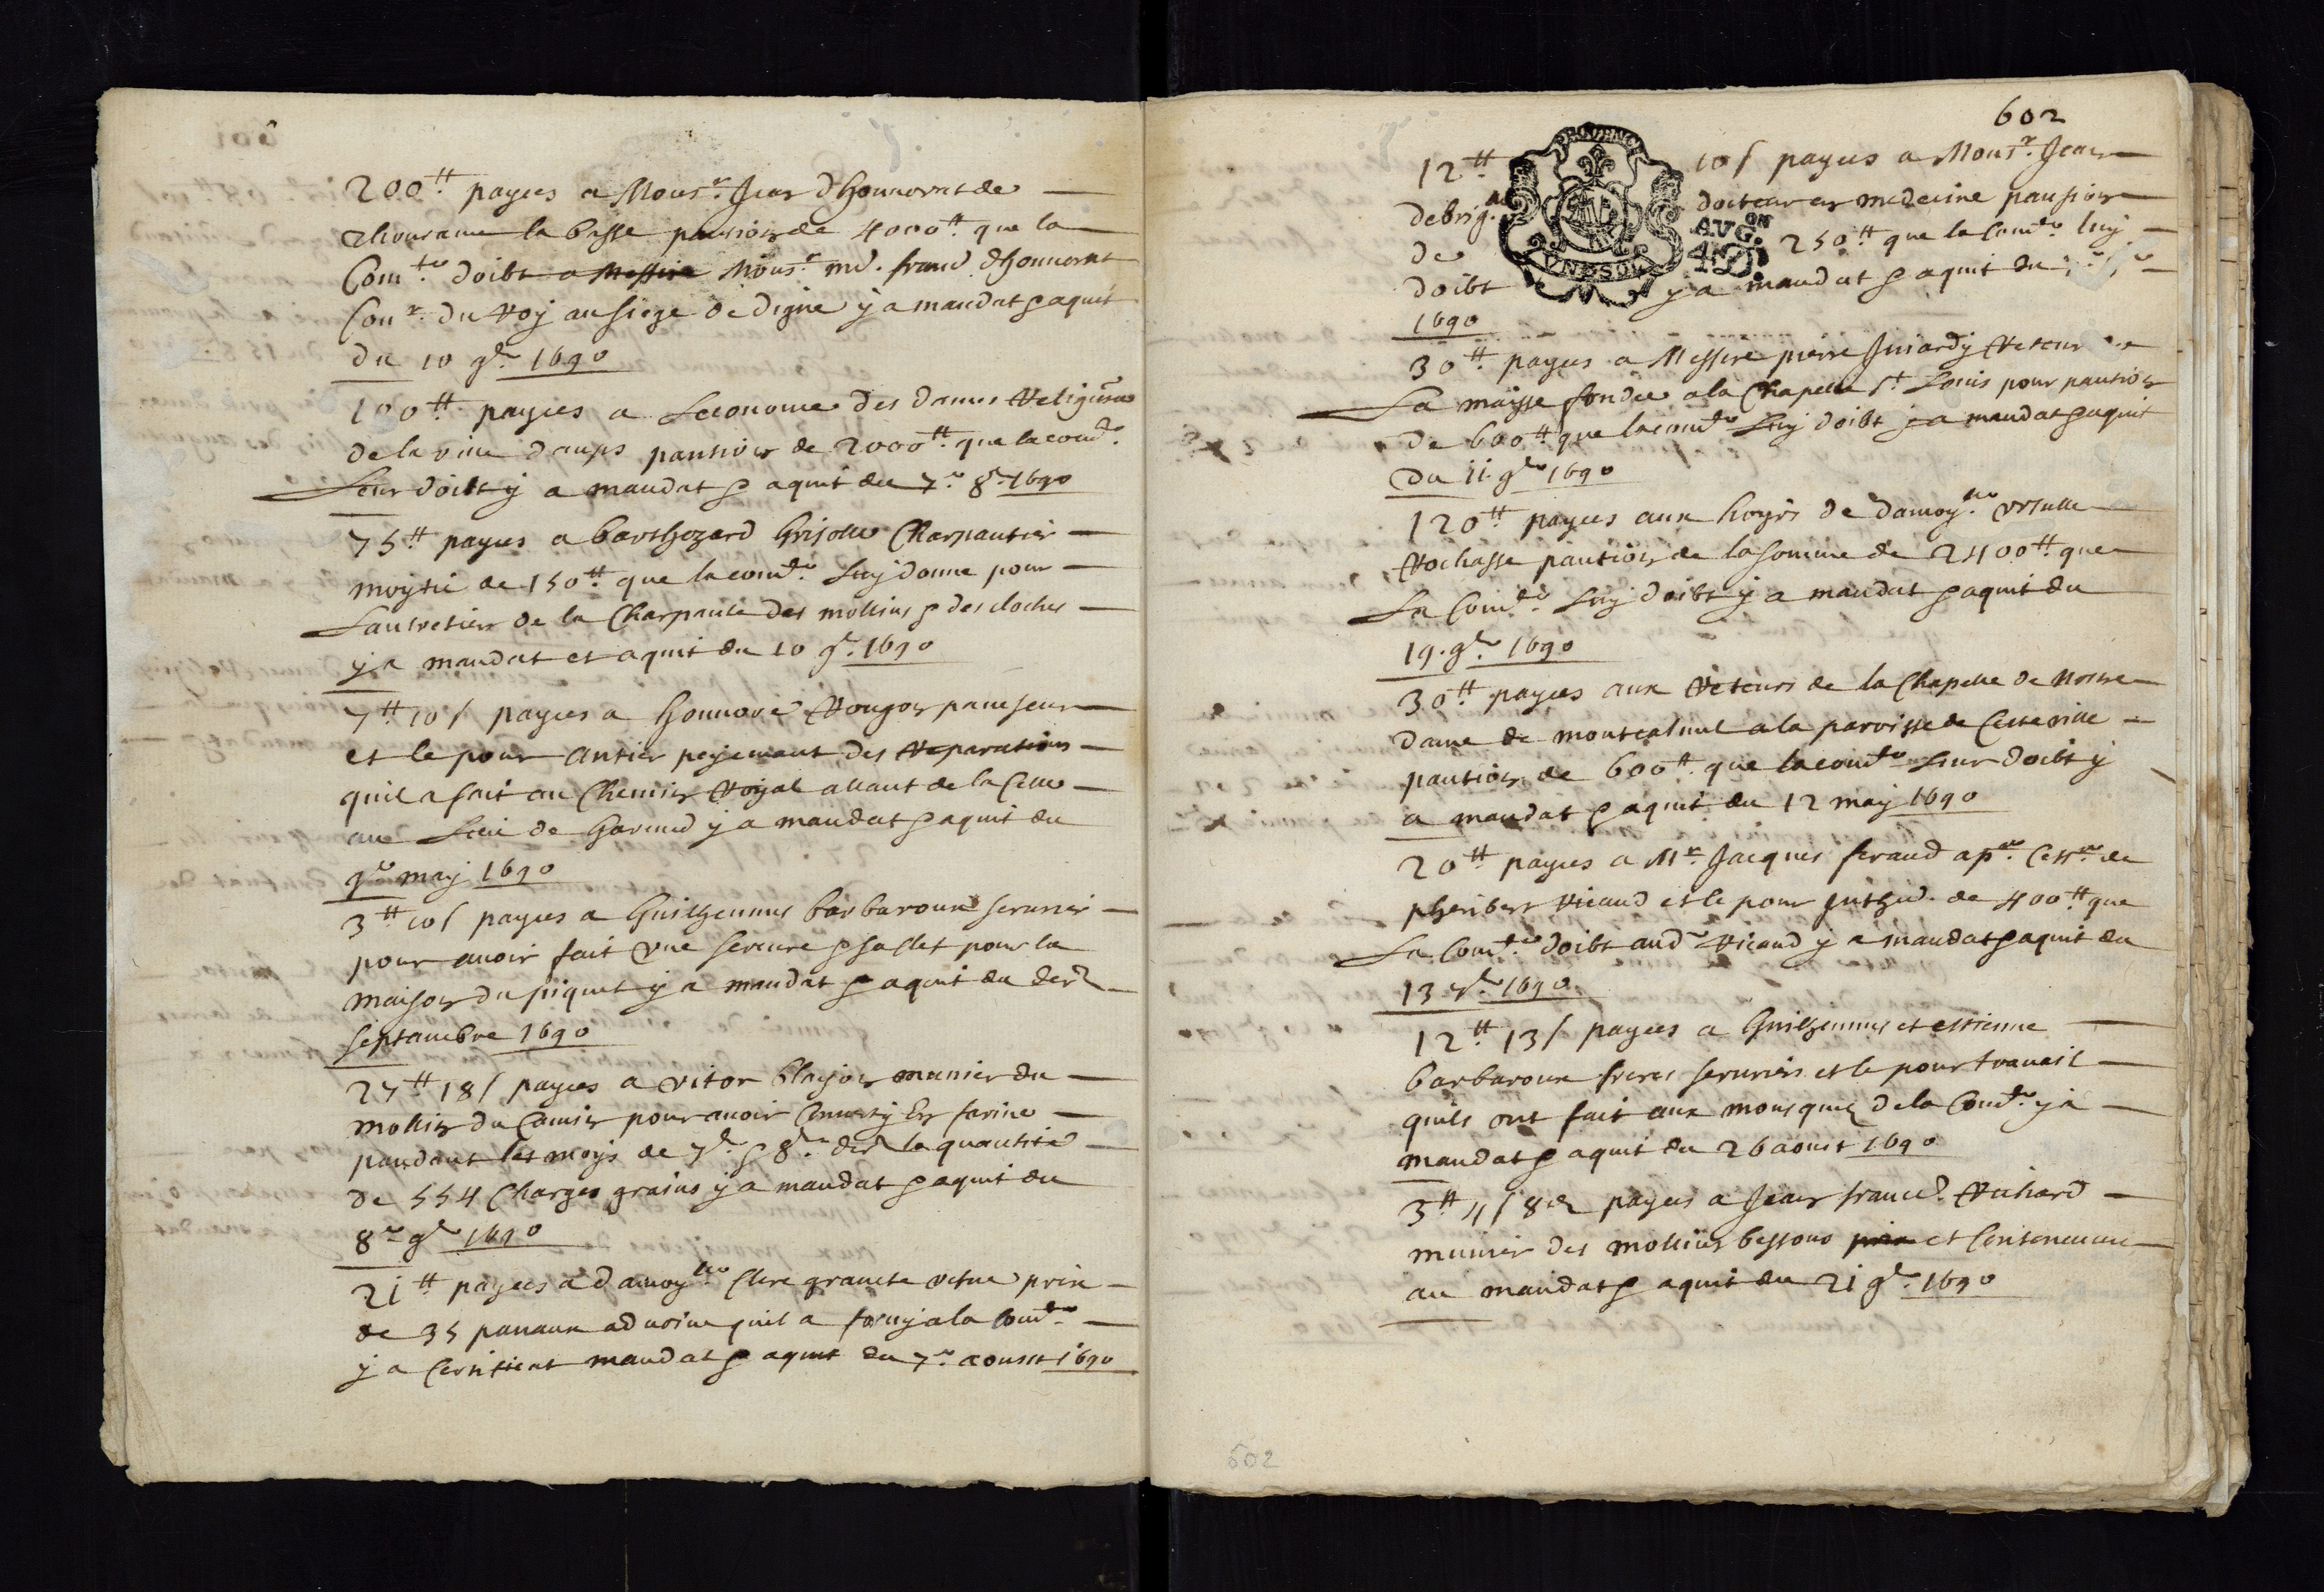 200₶ payees a Mons.r Jean dhonnorat de
thourame la basse pantion de 4000₶ que la
Com.te doibt a Messire Mons.r me. franc. dhonnorat
Con.r du Roy au siege de digne y a mandat & aquit
du 10 9.re 1690
100₶ payees a Leconome des dames Religieuses
de la ville daups pantion de 2000₶ que la com.te
Leur doibt y a mandat & aquit du 7.e 8.re 1690
75₶ payees a barthezard Grisolle Charpantier
moytié de 150₶ que la com.te Luy donne pour
Lantretien de la Charpante des mollins & des cloches
y a mandat et aquit du 10 9.re 1690
7₶ 10 s payees a honnoré Rougon
et le pour antier peyemant des Reparations
quil a fait au Chemin Royal allant de la Celle
au Lieu de Gareud y a mandat & aquit du
9.e may 1690
3₶ 10 s payees a Guilheaumes barbaroux serurier
pour avoir fait une serrure & pour la
maison du piquet y a mandat & aquit du der.r
septambre 1690
27₶ 18 s payees a vitor blayon munier du
mollin du Camin pour avoir en farine
pandant les moys de 7.re & 8.re der la quantité
de 554 Charges grains y a mandat & aquit du
8.e 9.re 1690
21₶ payees a damoy.lle Clere vefve prix
de 35 panaux advoine quil a forny a la com.te
y a Certificat mandat & aquit du 7.e aoust 1690
602
12₶ 10 s payees a Mons.r Jean
debrig.c docteur en medecine pansion
de 250₶ que la Com.te luy
AVG.ON
4 D.
doibt y a mandat & aquit du
1690
30₶ payees a Messire pierre Juiardy Reteur de
La maisse fondee a la Chapelle S.t Louis pour pantion
de 600₶ que la com.te Luy doibt y a mandat & aquit
du 11. 9.re 1690
120₶ payees aux hoyrs de damoy.lle Ursulle
Rochasse pantion de la somme de 2400₶ que
La Com.te Luy doibt y a mandat & aquit du
19. 9.re 1690
30₶ payees aux Reteurs de la Chapelle de Nostre
dame de a la parroisse de Cette ville
pantion de 600₶ que la com.te Leur doibt y
a mandat & aquit du 12 may 1690
20₶ payees a M.r Jacques feraud ap.re Cess.re de
phenbert Ricaud et le pour de 400₶ que
La Com.te doibt aud. Ricaud y a mandat & aquit du
13 7.re 1690
12₶ 13 s payees a Guilheaumes et estienne
barbaroux freres seruriers et le pour travail
quils ont fait aux mousquez de la Com.te y a
mandat & aquit du 26 aoust 1690
3₶ 4 s 8 d payees a Jean franc. Richard
munier des mollins bessons prix et Contenu
au mandat & aquit du 21 9.re 1690
602